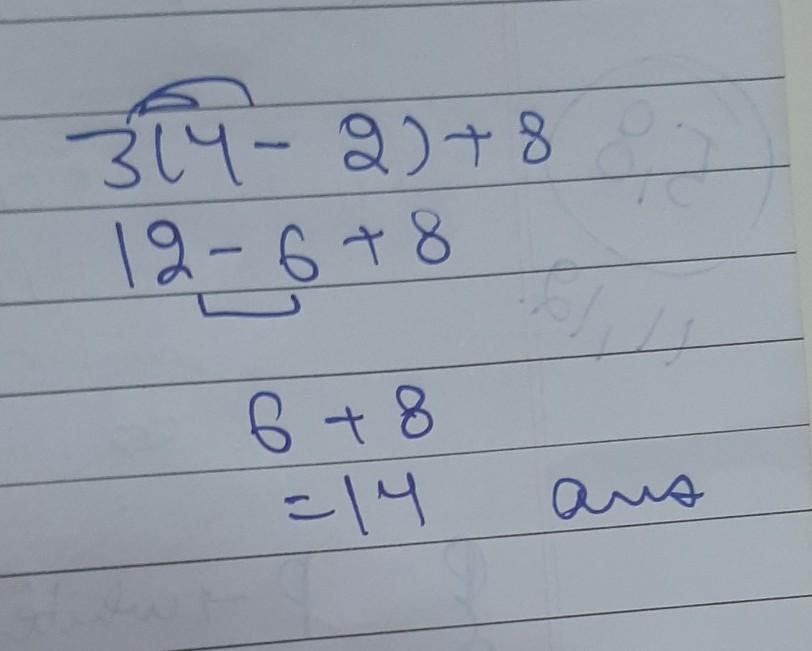 3(4 - 2) + 8
12 - 6 + 8
6 + 8
= 14 ans